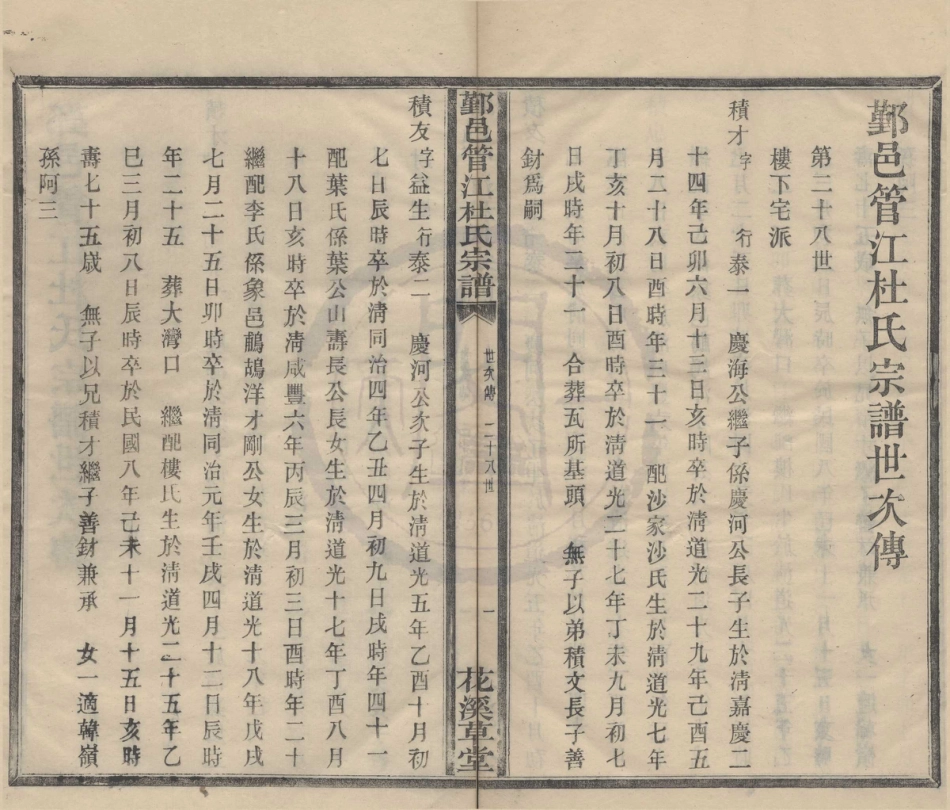 鄞邑管江杜氏宗譜世次傳
第二十八世
樓下宅派
積才 字 行泰一 慶海公繼子係慶河公長子生於清嘉慶二
十四年己卯六月十三日亥時卒於清道光二十九年己酉五
月二十八日酉時年三十一 配沙家沙氏生於清道光七年
丁亥十月初八日酉時卒於清道光二十七年丁未九月初七
日戌時年二十一 合葬瓦所基頭 無子以弟積文長子善
財爲嗣
鄞邑管江杜氏宗譜
世次傳 二十八世
一
花溪草堂
積友 字益生 行泰二 慶河公次子生於清道光五年乙酉十月初
七日辰時卒於清同治四年乙丑四月初九日戌時年四十一
配葉氏係葉公山壽長公長女生於清道光十七年丁酉八月
十八日亥時卒於清咸豐六年丙辰三月初三日酉時年二十
繼配李氏係象邑鶄鴣洋才剛公女生於清道光十八年戊戌
七月二十五日卯時卒於清同治元年壬戌四月十二日辰時
年二十五 葬大灣口 繼配樓氏生於清道光二十五年乙
巳三月初八日辰時卒於民國八年己未十一月十五日亥時
壽七十五歲 無子以兄積才繼子善財兼承 女一適韓嶺
孫阿三